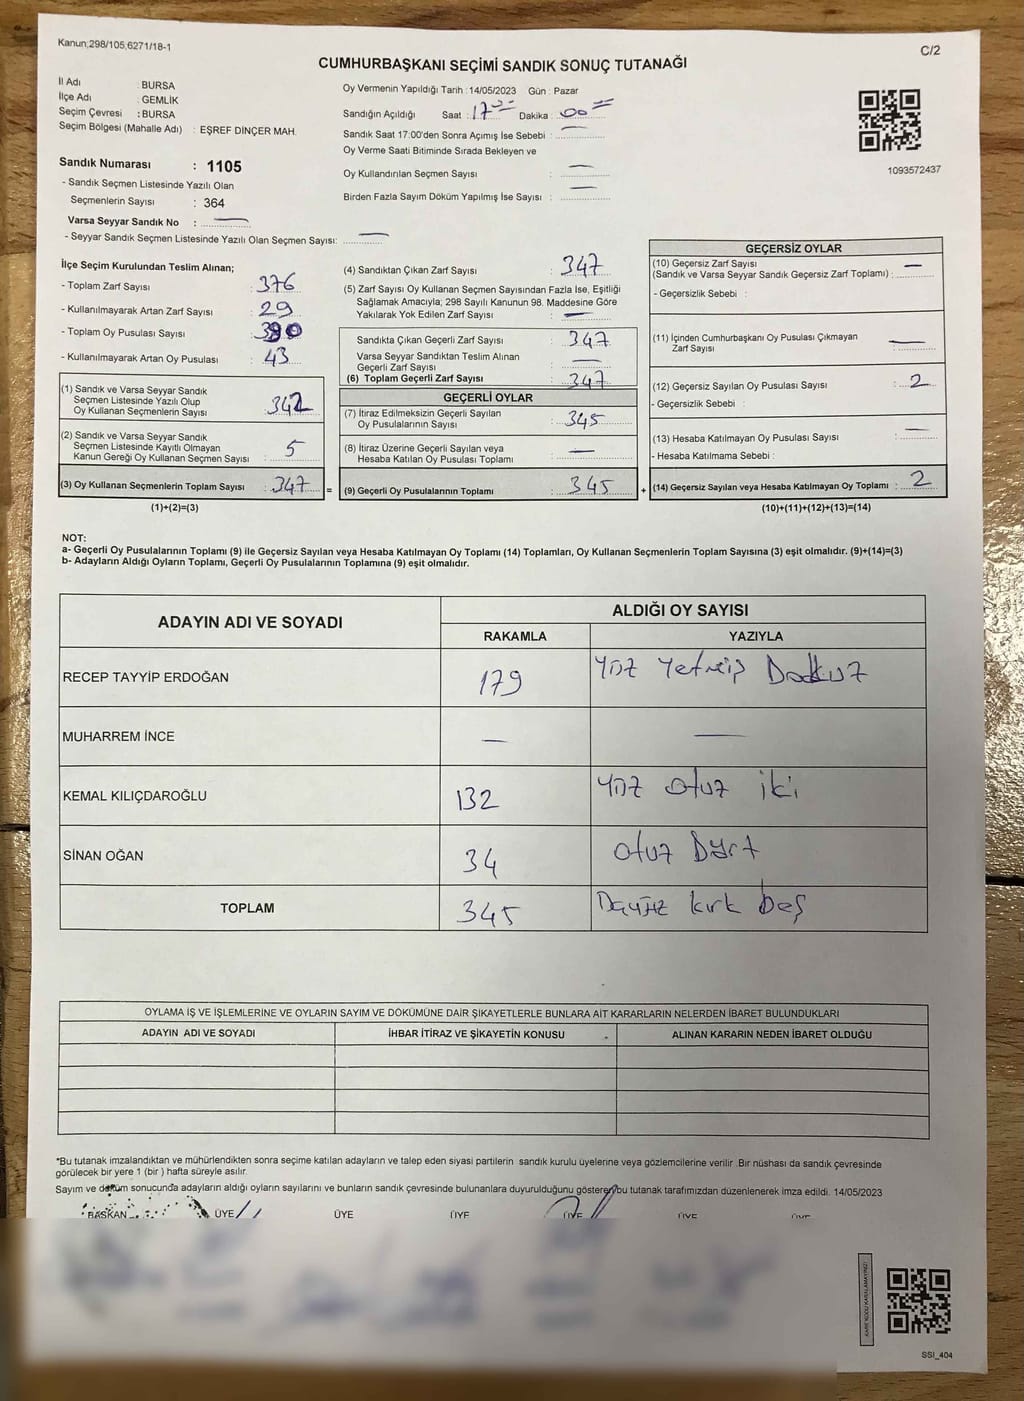 Kanun;298/105;6271/18-1
C/2
CUMHURBAŞKANI SEÇİMİ SANDIK SONUÇ TUTANAĞI
İl Adı : BURSA
İlçe Adı : GEMLİK
Seçim Çevresi : BURSA
Seçim Bölgesi (Mahalle Adı) : EŞREF DİNÇER MAH.
Sandık Numarası : 1105
- Sandık Seçmen Listesinde Yazılı Olan
Seçmenlerin Sayısı : 364
Varsa Seyyar Sandık No : —
- Seyyar Sandık Seçmen Listesinde Yazılı Olan Seçmen Sayısı: —
Oy Vermenin Yapıldığı Tarih : 14/05/2023 Gün : Pazar
Sandığın Açıldığı Saat : 17 Dakika : 00
Sandık Saat 17:00'den Sonra Açımış İse Sebebi : —
Oy Verme Saati Bitiminde Sırada Bekleyen ve
Oy Kullandırılan Seçmen Sayısı : —
Birden Fazla Sayım Döküm Yapılmış İse Sayısı : —
1093572437
İlçe Seçim Kurulundan Teslim Alınan;
- Toplam Zarf Sayısı : 376
- Kullanılmayarak Artan Zarf Sayısı : 29
- Toplam Oy Pusulası Sayısı : 390
- Kullanılmayarak Artan Oy Pusulası : 43
(1) Sandık ve Varsa Seyyar Sandık
Seçmen Listesinde Yazılı Olup
Oy Kullanan Seçmenlerin Sayısı : 342
(2) Sandık ve Varsa Seyyar Sandık
Seçmen Listesinde Kayıtlı Olmayan
Kanun Gereği Oy Kullanan Seçmen Sayısı : 5
(3) Oy Kullanan Seçmenlerin Toplam Sayısı : 347 =
(1)+(2)=(3)
(4) Sandıktan Çıkan Zarf Sayısı : 347
(5) Zarf Sayısı Oy Kullanan Seçmen Sayısından Fazla İse, Eşitliği
Sağlamak Amacıyla; 298 Sayılı Kanunun 98. Maddesine Göre
Yakılarak Yok Edilen Zarf Sayısı : —
Sandıkta Çıkan Geçerli Zarf Sayısı : 347
Varsa Seyyar Sandıktan Teslim Alınan
Geçerli Zarf Sayısı : —
(6) Toplam Geçerli Zarf Sayısı : 347
GEÇERLİ OYLAR
(7) İtiraz Edilmeksizin Geçerli Sayılan
Oy Pusulalarının Sayısı : 345
(8) İtiraz Üzerine Geçerli Sayılan veya
Hesaba Katılan Oy Pusulası Toplamı : —
(9) Geçerli Oy Pusulalarının Toplamı : 345 +
GEÇERSİZ OYLAR
(10) Geçersiz Zarf Sayısı
(Sandık ve Varsa Seyyar Sandık Geçersiz Zarf Toplamı) : —
- Geçersizlik Sebebi :
(11) İçinden Cumhurbaşkanı Oy Pusulası Çıkmayan
Zarf Sayısı : —
(12) Geçersiz Sayılan Oy Pusulası Sayısı : 2
- Geçersizlik Sebebi :
(13) Hesaba Katılmayan Oy Pusulası Sayısı : —
- Hesaba Katılmama Sebebi :
(14) Geçersiz Sayılan veya Hesaba Katılmayan Oy Toplamı : 2
(10)+(11)+(12)+(13)=(14)
NOT:
a- Geçerli Oy Pusulalarının Toplamı (9) ile Geçersiz Sayılan veya Hesaba Katılmayan Oy Toplamı (14) Toplamları, Oy Kullanan Seçmenlerin Toplam Sayısına (3) eşit olmalıdır. (9)+(14)=(3)
b- Adayların Aldığı Oyların Toplamı, Geçerli Oy Pusulalarının Toplamına (9) eşit olmalıdır.
ADAYIN ADI VE SOYADI ALDIĞI OY SAYISI
RAKAMLA YAZIYLA
RECEP TAYYİP ERDOĞAN 179 Yüz Yetmiş Dokuz
MUHARREM İNCE — —
KEMAL KILIÇDAROĞLU 132 Yüz otuz iki
SİNAN OĞAN 34 otuz Dört
TOPLAM 345 kırk beş
OYLAMA İŞ VE İŞLEMLERİNE VE OYLARIN SAYIM VE DÖKÜMÜNE DAİR ŞİKAYETLERLE BUNLARA AİT KARARLARIN NELERDEN İBARET BULUNDUKLARI
ADAYIN ADI VE SOYADI İHBAR İTİRAZ VE ŞİKAYETİN KONUSU ALINAN KARARIN NEDEN İBARET OLDUĞU
*Bu tutanak imzalandıktan ve mühürlendikten sonra seçime katılan adayların ve talep eden siyasi partilerin sandık kurulu üyelerine veya gözlemcilerine verilir .Bir nüshası da sandık çevresinde
görülecek bir yere 1 (bir ) hafta süreyle asılır.
Sayım ve döküm sonucunda adayların aldığı oyların sayılarını ve bunların sandık çevresinde bulunanlara duyurulduğunu gösteren bu tutanak tarafımızdan düzenlenerek imza edildi. 14/05/2023
BAŞKAN ÜYE ÜYE ÜYE ÜYE ÜYE ÜYE
SSI_404